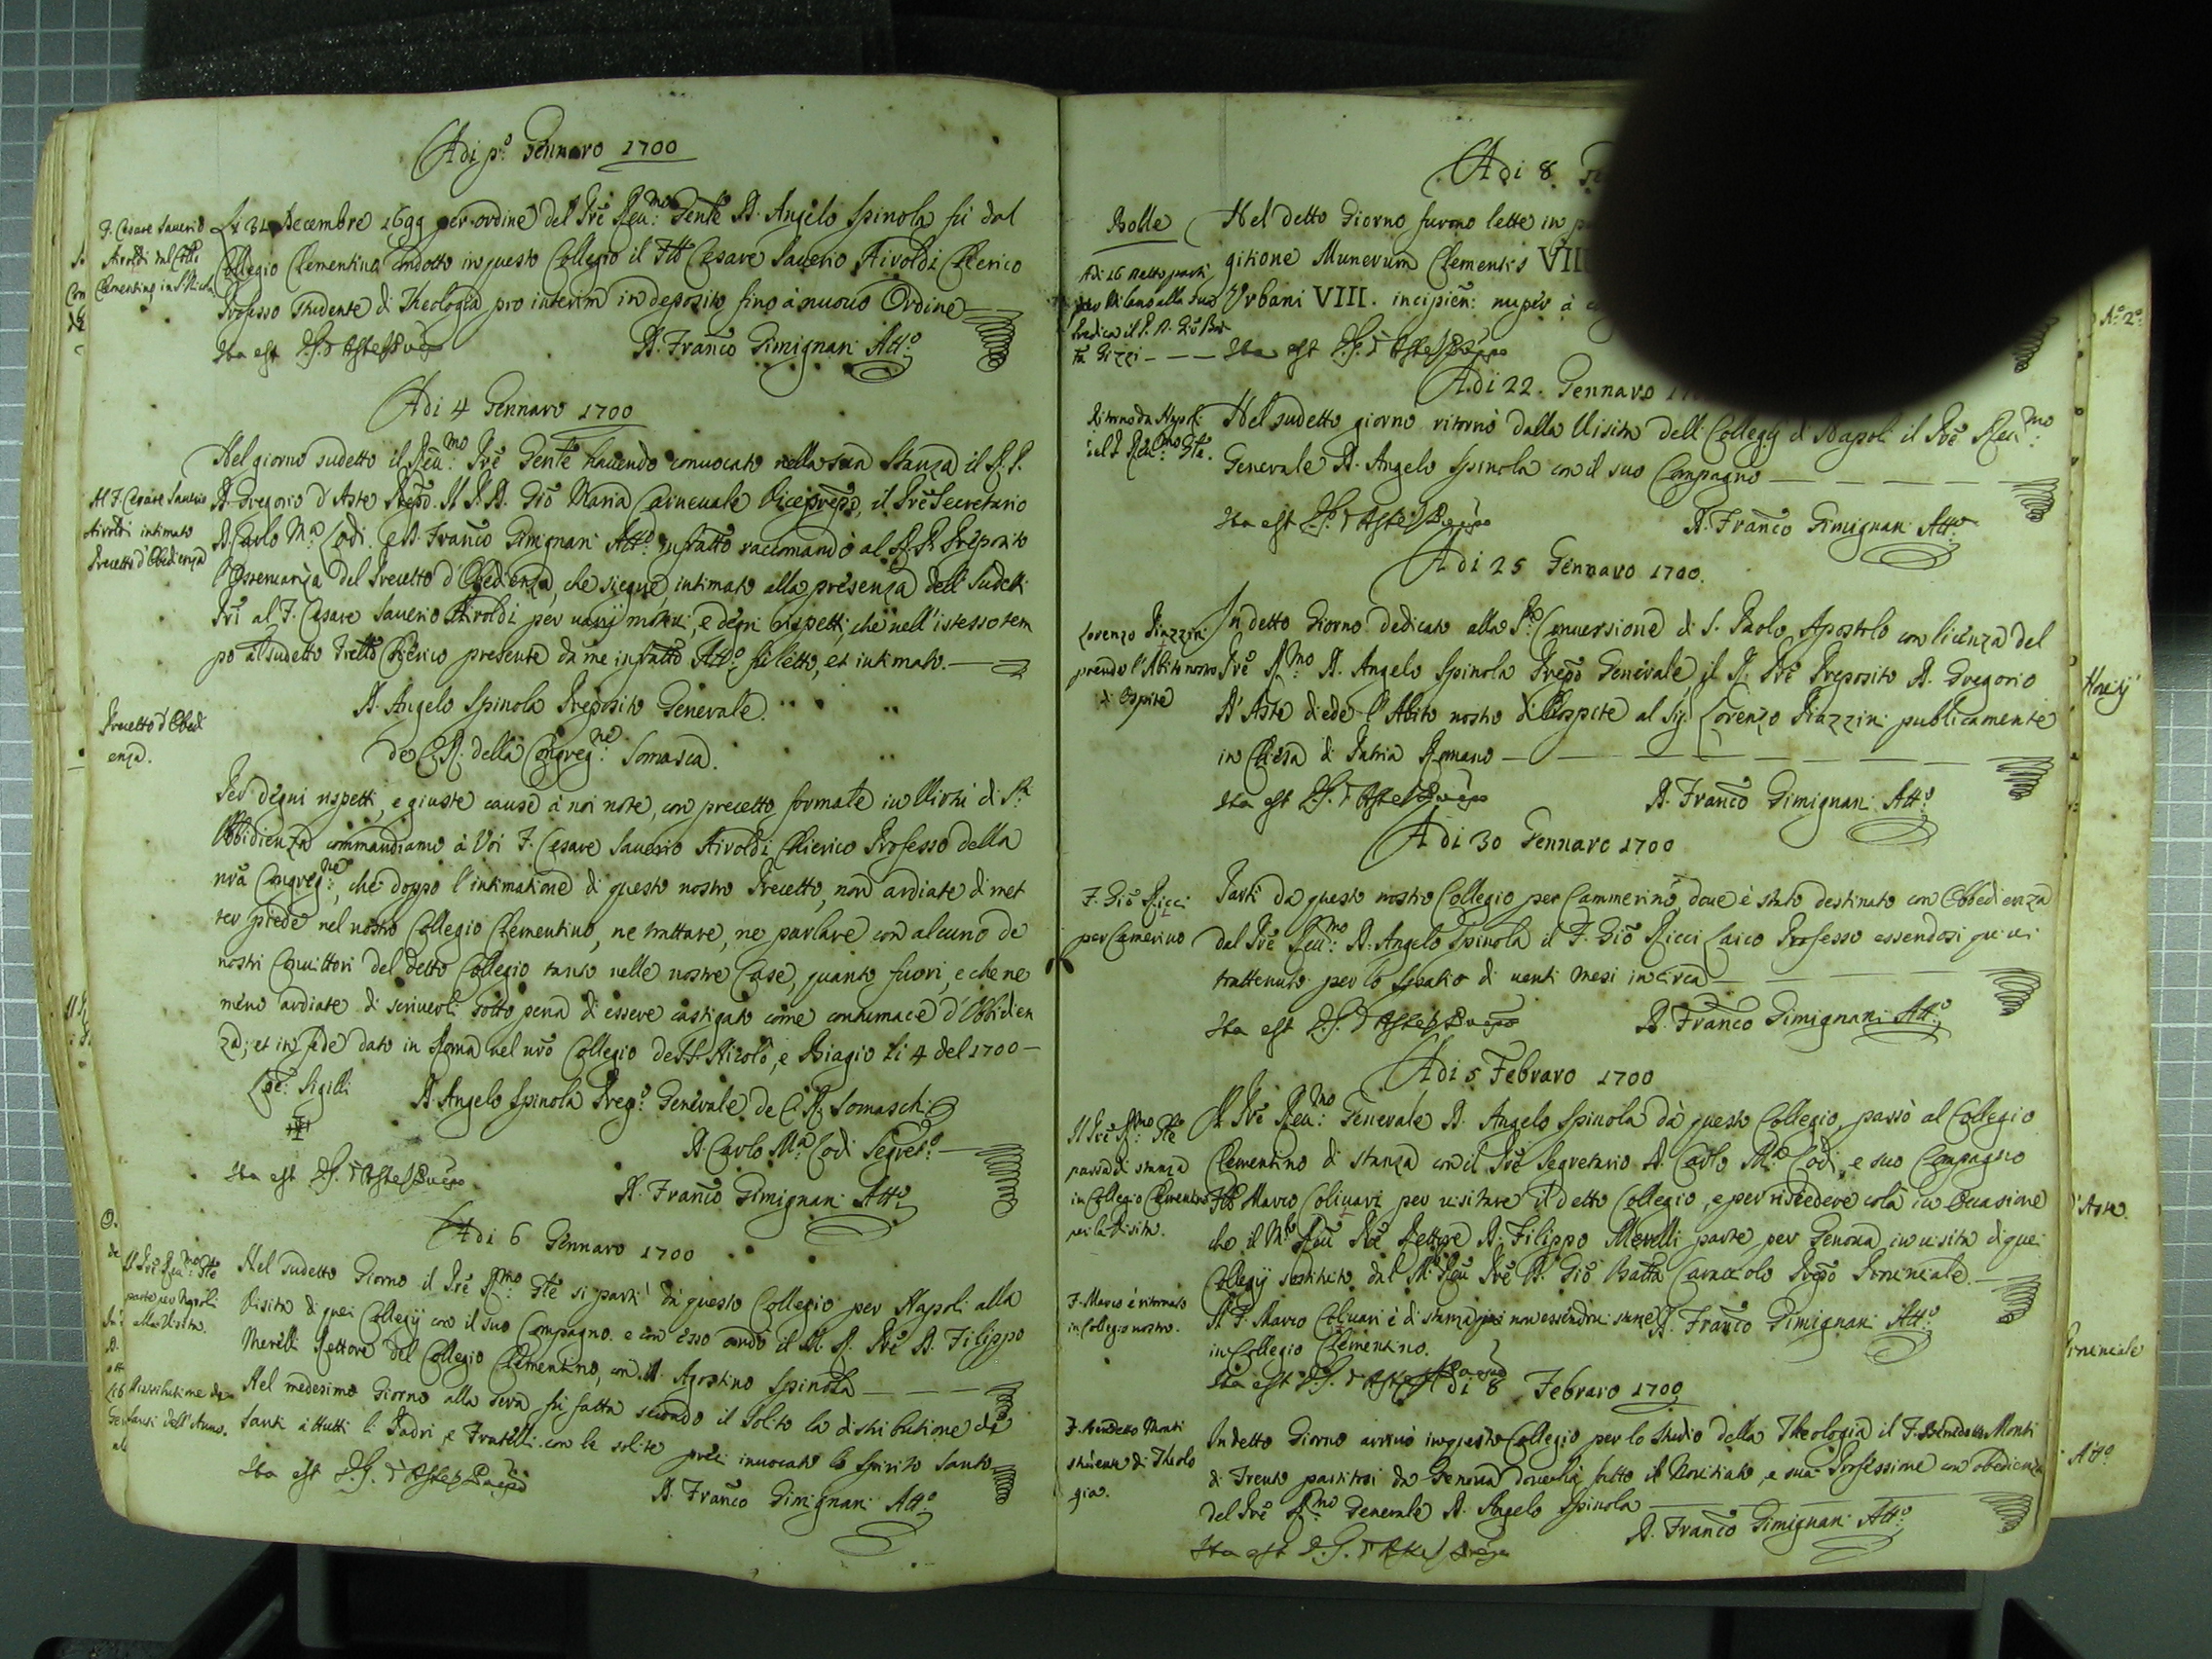 Adi p.º Gennaro 1700
F. Cesare Saverio
Airoldi dal Coll.º
Clementino in S. Nicola
Li 31 Decembre 1699 per ordine del Prē Reu.mo Gēnle D. Angelo Spinola fù dal
Collegio Clementino condotto in questo Collegio il Fllo Cesare Saverio Airoldi Clerico
Professo studente di Theologia pro interim in deposito fino à nuovo Ordine
Ita est D. G. d'Aste Prēpo
D. Franco Gimignani Att.º
Adi 4 Gennaro 1700
Al F. Cesare Saverio
Airoldi intimato
Precetto d'Obedienza
Nel giorno sudetto il Reu.mo Prē Gēnle havendo convocato nella sua Stanza il R. P.
D. Gregorio d'Aste Prepō. Il P. D. Giō Maria Carnevale Viceprepō, il Prē Secretario
D. Carlo M.a Lodi, e D. Franco Gimignani Att.º infratto raccomandò al R. P. Preposito
l'osservanza del Precetto d'Obedienza, che siegue, intimato alla presenza delli sudetti
Pri al F. Cesare Saverio Airoldi per varij motivi, e degni rispetti, che nell'istesso tem
po al sudetto Fratello Chierico presente da me infratto Att.º fù letto, et intimato.
D. Angelo Spinola Preposito Generale
de C. R. della Congreg.ne Somasca.
Precetto d'Obedi
enza.
Per degni rispetti, e giuste cause à noi note, con precetto formale in Virtù di S.ta
Obbidienza commandiamo à Voi F. Cesare Saverio Airoldi Chierico Professo della
nrā Congreg.ne, che doppo l'intimatione di questo nostro Precetto, non ardiate di met
ter piede nel nostro Collegio Clementino, ne trattare, ne parlare con alcuno de
nostri Convittori del detto Collegio tanto nelle nostre Case, quanto fuori, e che ne
meno ardiate di scriverli sotto pena di essere castigato come contumace d'Obbidien
za; et in fede dato in Roma nel nrō Collegio de SS. Nicolò, e Biagio li 4 del 1700
Loc: Sigilli
D. Angelo Spinola Prep.º Generale de C. R. Somaschi
D. Carlo M.a Lodi Segret.º
Ita est D. G. d'Aste Prēpo
D. Franco Gimignani Att.º
Adi 6 Gennaro 1700
Il Prē Reu.mo Gle
parte per Napoli
alla Visita.
Nel sudetto Giorno il Prē R.mo Gle si partì da questo Collegio per Napoli alla
Visita di quei Collegij con il suo Compagno. e con esso andò il M. R. Prē D. Filippo
Merelli Rettore del Collegio Clementino, con D. Agostino Spinola
Distributione de
Santi dell'Anno.
Nel medesimo Giorno alla sera fù fatta secondo il solito la distributione de
Santi à tutti li Padri, e Fratelli con le solite preci invocato lo Spirito Santo
Ita est D. G. d'Aste Prēpo
D. Franco Gimignani Att.º
Adi 8
Bolle
Nel detto Giorno furono lette in
gitione Munerum Clementis VIII
Urbani VIII. incipien: nuper à
Adi 16 detto partì
per Milano alla sua
Predica il P. D. Giō Bat
ta Gizzi
Ita est D. G. d'Aste Prēpo
Adi 22. Gennaro
Ritorno da Napoli
del P. Reu.mo Gle.
Nel sudetto giorno ritornò dalla Visita delli Collegij di Napoli il Prē Reu.mo
Generale D. Angelo Spinola con il suo Compagno
Ita est D. G. d'Aste Prēpo
D. Franco Gimignani Att.º
Adi 25 Gennaro 1700.
Lorenzo Piazzini
prende l'Abito nostro
di Ospite
In detto Giorno dedicato alla Conversione di S. Paolo Apostolo con licenza del
Prē R.mo D. Angelo Spinola Prepō Generale, il R. Prē Preposito D. Gregorio
D'Aste diede l'Abito nostro di Ospite al Sig. Lorenzo Piazzini publicamente
in Chiesa di Patria Romano
Ita est D. G. d'Aste Prēpo
D. Franco Gimignani Att.º
Adi 30 Gennaro 1700
F. Giō Ricci
per Camerino
Partì da questo nostro Collegio per Cammerino, dove è stato destinato con Obbedienza
dal Prē Reu.mo D. Angelo Spinola il F. Giō Ricci Laico Professo essendosi quivi
trattenuto per lo spatio di venti mesi in circa
Ita est D. G. d'Aste Prēpo
D. Franco Gimignani Att.º
Adi 5 Febraro 1700
Il Prē R.mo Gle
passa di stanza
in Collegio Clementino
per la Visita.
Il Prē Reu.mo Generale D. Angelo Spinola dà questo Collegio, passò al Collegio
Clementino di stanza con il Prē Segretario D. Carlo M.a Lodi, e suo Compagno
Fllo Marco Colivari per visitare il detto Collegio, e per risedere colà in occasione
che il M.to Reu Prē Rettore D. Filippo Merelli parte per Genova in visita di quei
Collegij sostituito dal M. Reu Prē D. Giō Batta Caracciolo Prepō Provinciale.
F. Marco è ritornato
in Collegio nostro.
Il F. Marco Colivari è di stanza quì non essendovi stanze
in Collegio Clementino.
D. Franco Gimignani Att.º
Ita est D. G. d'Aste Prēpo
Adi 8 Febraro 1700
F. Benedetto Monti
studente di Theolo
gia.
In detto Giorno arrivò in questo Collegio per lo studio della Theologia il F. Benedetto Monti
di Trento partitosi da Genova dove hà fatto il Novitiato, e sua Professione con obedienza
del Prē R.mo Generale D. Angelo Spinola
Ita est D. G. d'Aste Prēpo
D. Franco Gimignani Att.º
N.º 2º
d'Aste.
Att.º